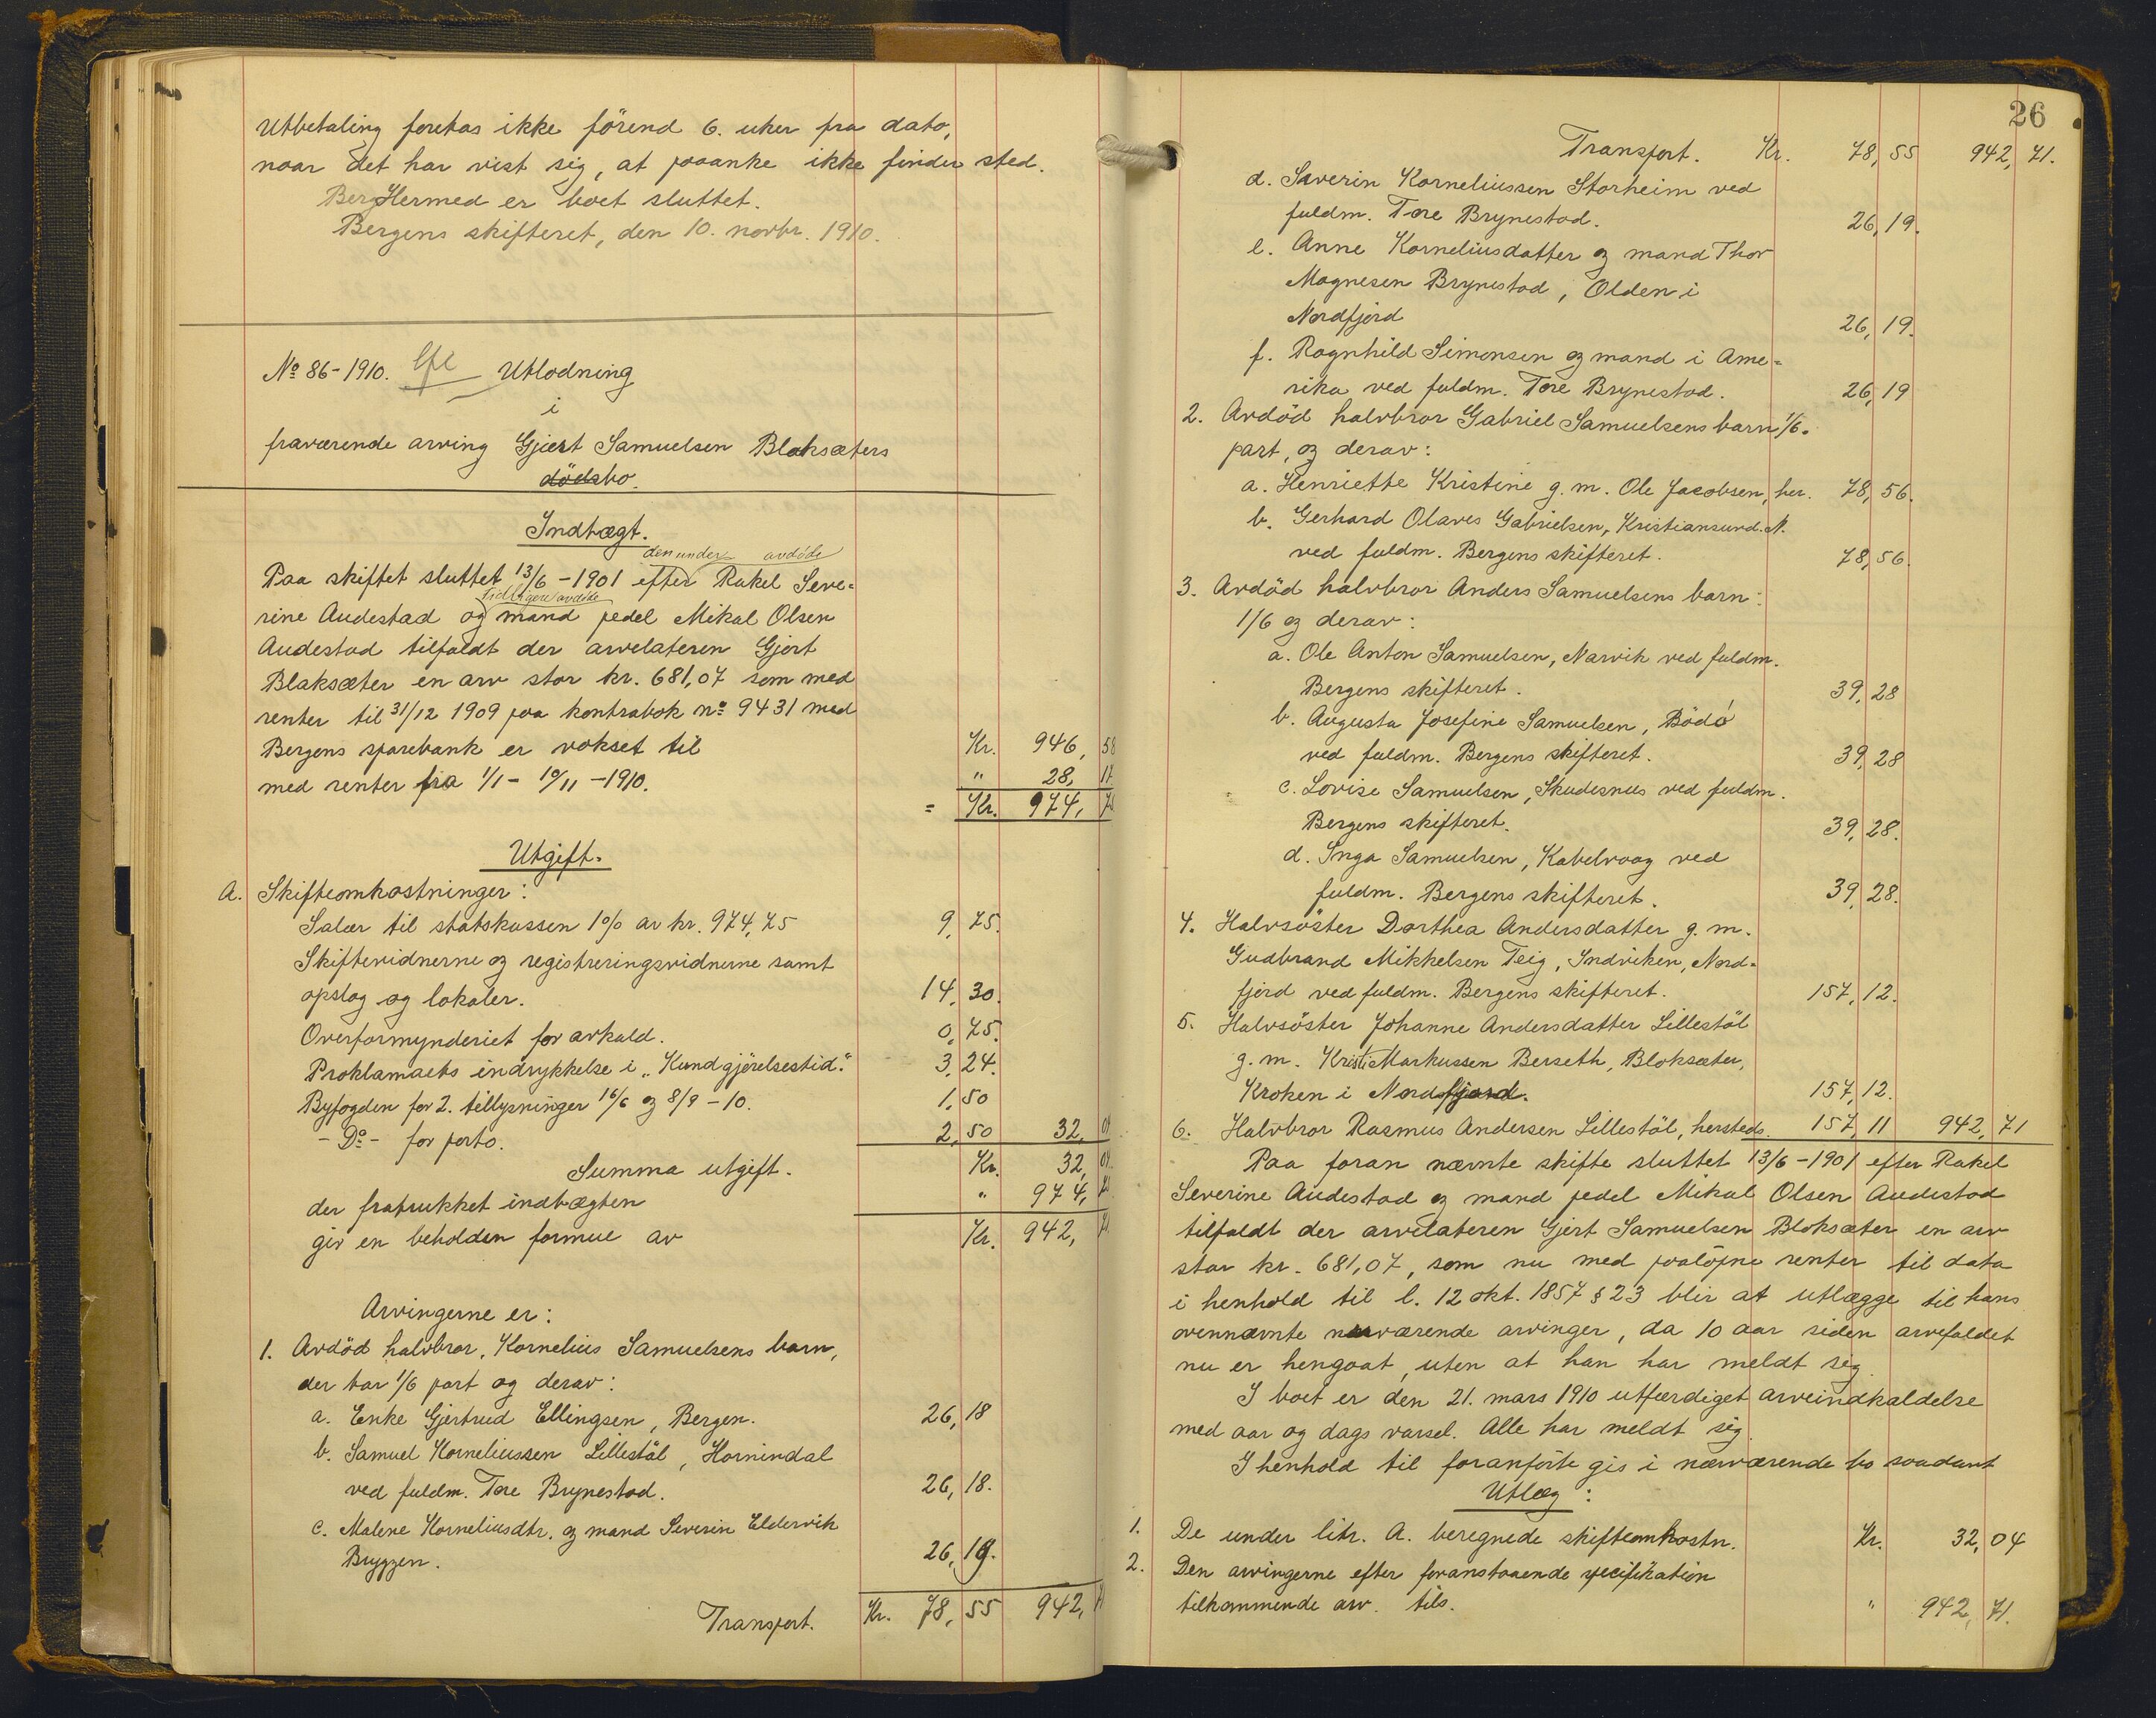 Utbetaling foretas ikke förend 6. uker fra dato,
naar det har vist sig, at paaanke ikke finder sted.
Berg Hermed er boet sluttet.
Bergens skifteret, den 10. novbr. 1910.
No 86-1910. Utlodning
i
fraværende arving Gjert Samuelsen Blaksæters
dödsbo.
Indtægt.
den under avdöde
Paa skiftet sluttet 13/6 - 1901 efter Rakel Seve=
tidligere avdöde
rine Audestad og mand pedel Mikal Olsen
Audestad tilfaldt der arvelateren Gjert
Blaksæter en arv stor kr. 681,07 som med
renter til 31/12 1909 paa kontrabok no 9431 med
Bergens sparebank er vokset til Kr. 946, 58
med renter fra 1/1 - 10/11 - 1910. " 28, 17
= Kr. 974, 75
Utgift.
A. Skifteomkostninger:
Salær til statskassen 1% av kr. 974,75 9, 75.
Skiftevidnerne og registreringsvidnerne samt
opslag og lokaler. 14, 30.
Overformynderiet for avkald. 0, 75.
Proklamaets indrykkelse i „Kundgjörelsestid." 3, 24.
Byfogden for 2. tillysninger 16/6 og 8/9 - 10. 1, 50
- Do - for porto. 2, 50 32, 04
Summa utgift. Kr. 32, 04
der fratrukket indtægten " 974, 75
gir en beholden formue av Kr. 942, 71
Arvingerne er:
1. Avdöd halvbror, Kornelius Samuelsens barn,
der tar 1/6 part og derav:
a. Enke Gjertrud Ellingsen, Bergen. 26, 18
b. Samuel Korneliussen Lillestöl, Hornindal
ved fuldm. Tore Brynestad. 26, 18.
c. Malene Korneliusdtr. og mand Severin Eldervik
Bryggen. 26, 19.
Transport. Kr. 78, 55 942, 71
26
Transport. Kr. 78, 55 942, 71.
d. Severin Korneliussen Storheim ved
fuldm. Tore Brynestad. 26, 19.
e. Anne Korneliusdatter og mand Thor
Magnesen Brynestad, Olden i
Nordfjord 26, 19.
f. Ragnhild Simonsen og mand i Ame=
rika ved fuldm. Tore Brynestad. 26, 19
2. Avdöd halvbror Gabriel Samuelsens barn 1/6.
part, og derav:
a. Henriette Kristine g. m. Ole Jacobsen, her. 78, 56.
b. Gerhard Olaves Gabrielsen, Kristiansund. N.
ved fuldm. Bergens skifteret. 78, 56.
3. Avdöd halvbror Anders Samuelsens barn:
1/6 og derav:
a. Ole Anton Samuelsen, Narvik ved fuldm.
Bergens skifteret. 39, 28
b. Augusta Josefine Samuelsen, Bödö
ved fuldm. Bergens skifteret. 39, 28
c. Lovise Samuelsen, Skudesnes ved fuldm.
Bergens skifteret. 39, 28.
d. Inga Samuelsen, Kabelvaag ved
fuldm. Bergens skifteret. 39, 28.
4. Halvsöster Dorthea Andersdatter g. m.
Gudbrand Mikkelsen Teig, Indviken, Nord=
fjord ved fuldm. Bergens skifteret. 157, 12.
5. Halvsöster Johanne Andersdatter Lillestöl
g. m. Kristi Markussen Berseth, Bloksæter,
Kroken i Nordfjord. 157, 12.
6. Halvbror Rasmus Andersen Lillestöl, hersteds. 157, 11 942, 71
Paa foran nævnte skifte sluttet 13/6 - 1901 efter Rakel
Severine Audestad og mand pedel Mikal Olsen Audestad
tilfaldt der arvelateren Gjert Samuelsen Bloksæter en arv
stor kr. 681,07, som nu med paalöpne renter til dato
i henhold til l. 12 okt. 1857 § 23 blir at utlægge til hans
ovennævnte nærværende arvinger, da 10 aar siden arvefaldet
nu er hengaat, uten at han har meldt sig.
I boet er den 21. mars 1910 utfærdiget arveindkaldelse
med aar og dags varsel. Alle har meldt sig.
I henhold til foranförte gis i nærværende bo saadant
Utlæg:
1. De under litr. A. beregnede skifteomkostn. Kr. 32, 04
2. Den arvingerne efter foranstaaende specifikation
tilkommende arv. tils. " 942, 71.